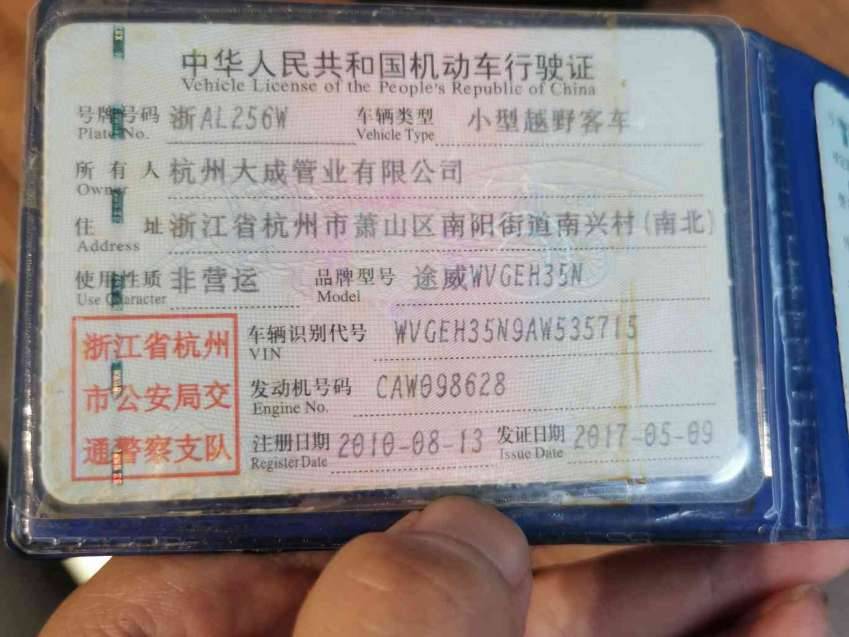 中华人民共和国机动车行驶证
Vehicle License of the People's Republic of China
号牌号码 浙AL256W 车辆类型 小型越野客车
Plate No. Vehicle Type
所有人 杭州大成管业有限公司
Owner
住址 浙江省杭州市萧山区南阳街道南兴村(南北)
Address
使用性质 非营运 品牌型号 途威WVGEH35N
Use Character Model
浙江省杭州
市公安局交
通警察支队
车辆识别代号 WVGEH35N9AW535715
VIN
发动机号码 CAW098628
Engine No.
注册日期 2010-08-13 发证日期 2017-05-09
Register Date Issue Date